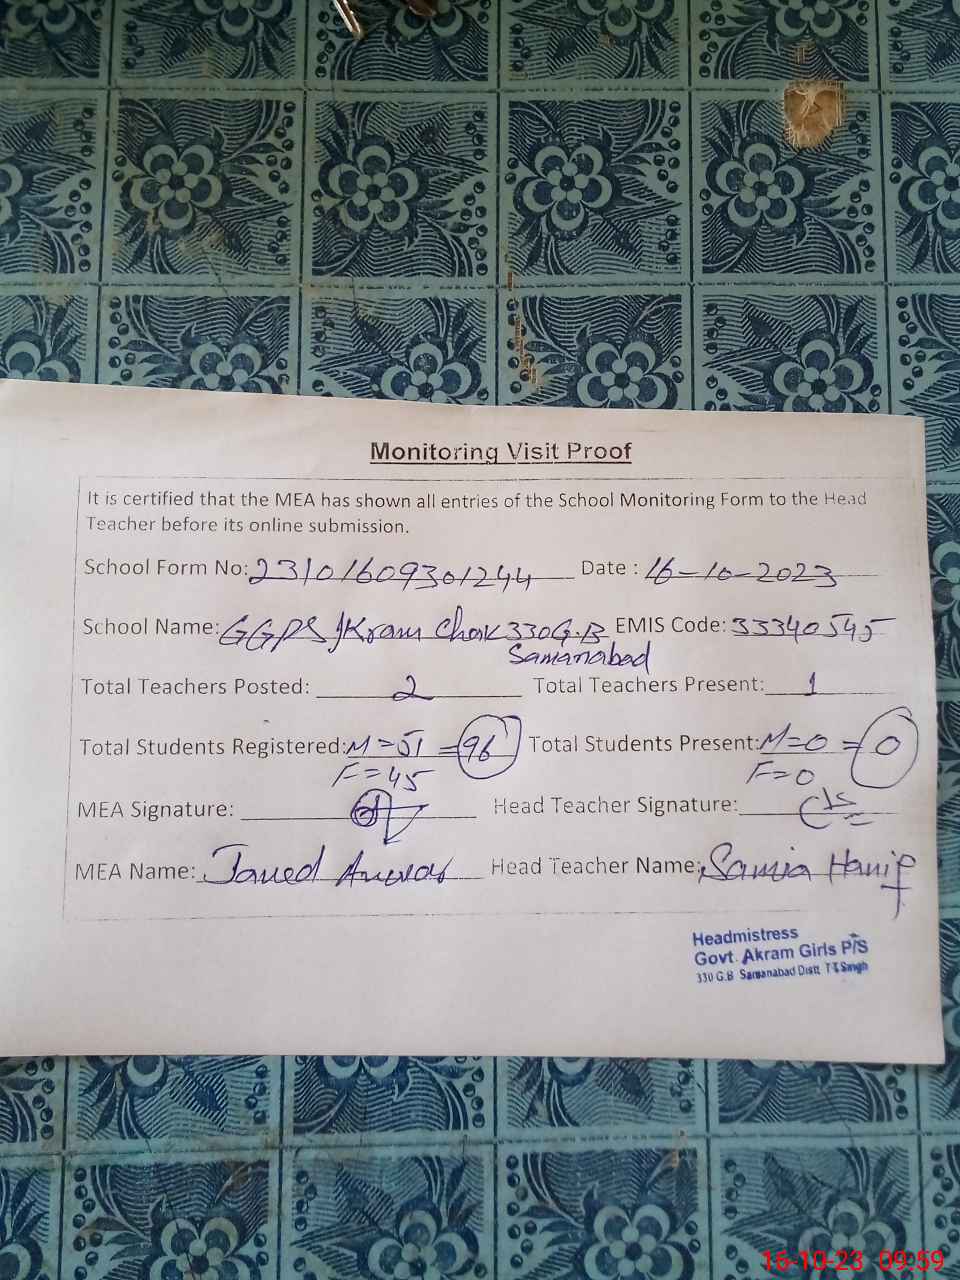 Monitoring Visit Proof
It is certified that the MEA has shown all entries of the School Monitoring Form to the Head
Teacher before its online submission.
School Form No: 23101609301244 Date : 16-10-2023
School Name: GGPS Akram Chak 330 G.B EMIS Code: 33340545
Samanabad
Total Teachers Posted: 2 Total Teachers Present: 1
Total Students Registered: M=51 =96 Total Students Present: M=0 = 0
F=45 F=0
MEA Signature: Head Teacher Signature:
MEA Name: Javed Anwar Head Teacher Name: Samia Hanif
Headmistress
Govt. Akram Girls P/S
330 G.B Samanabad Distt T.T.Singh
16-10-23 09:59